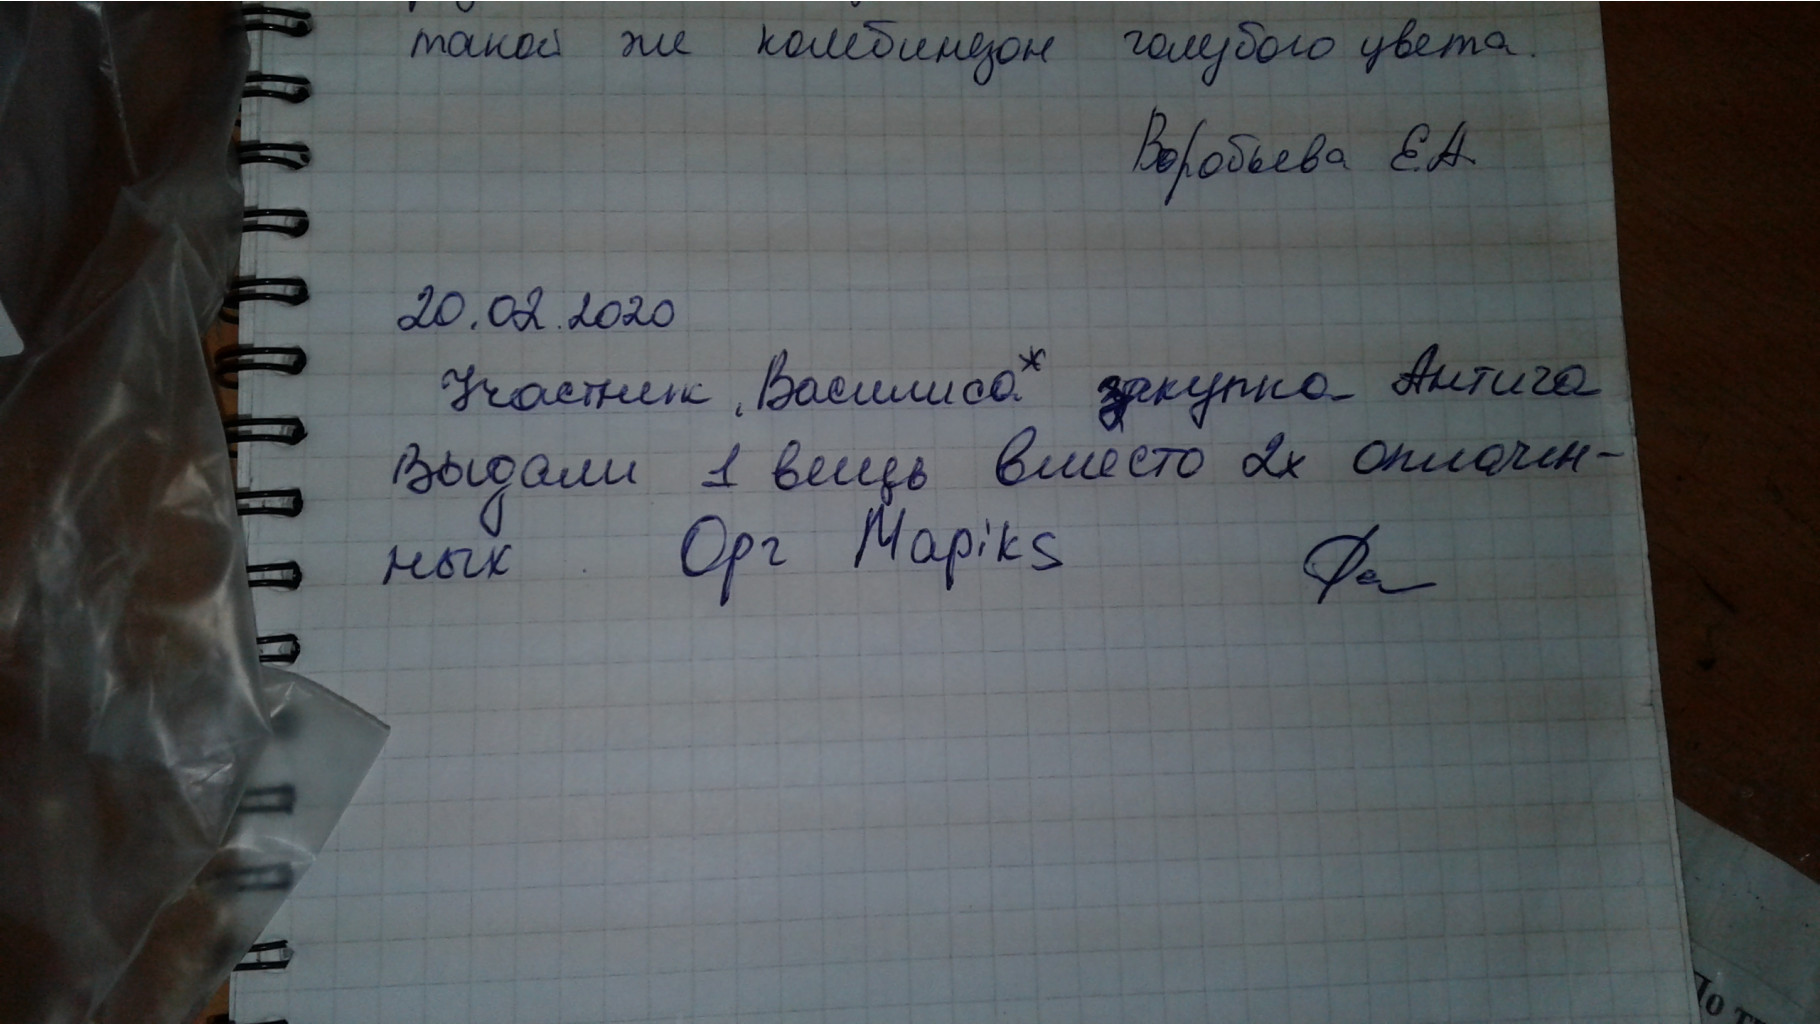 такой же комбинезон голубого цвета.
Воробьева Е.А.
20.02.2020
Участник „Василиса* закупка Антига
выдали 1 вещь вместо 2х оплачен-
ных Орг Mapiks